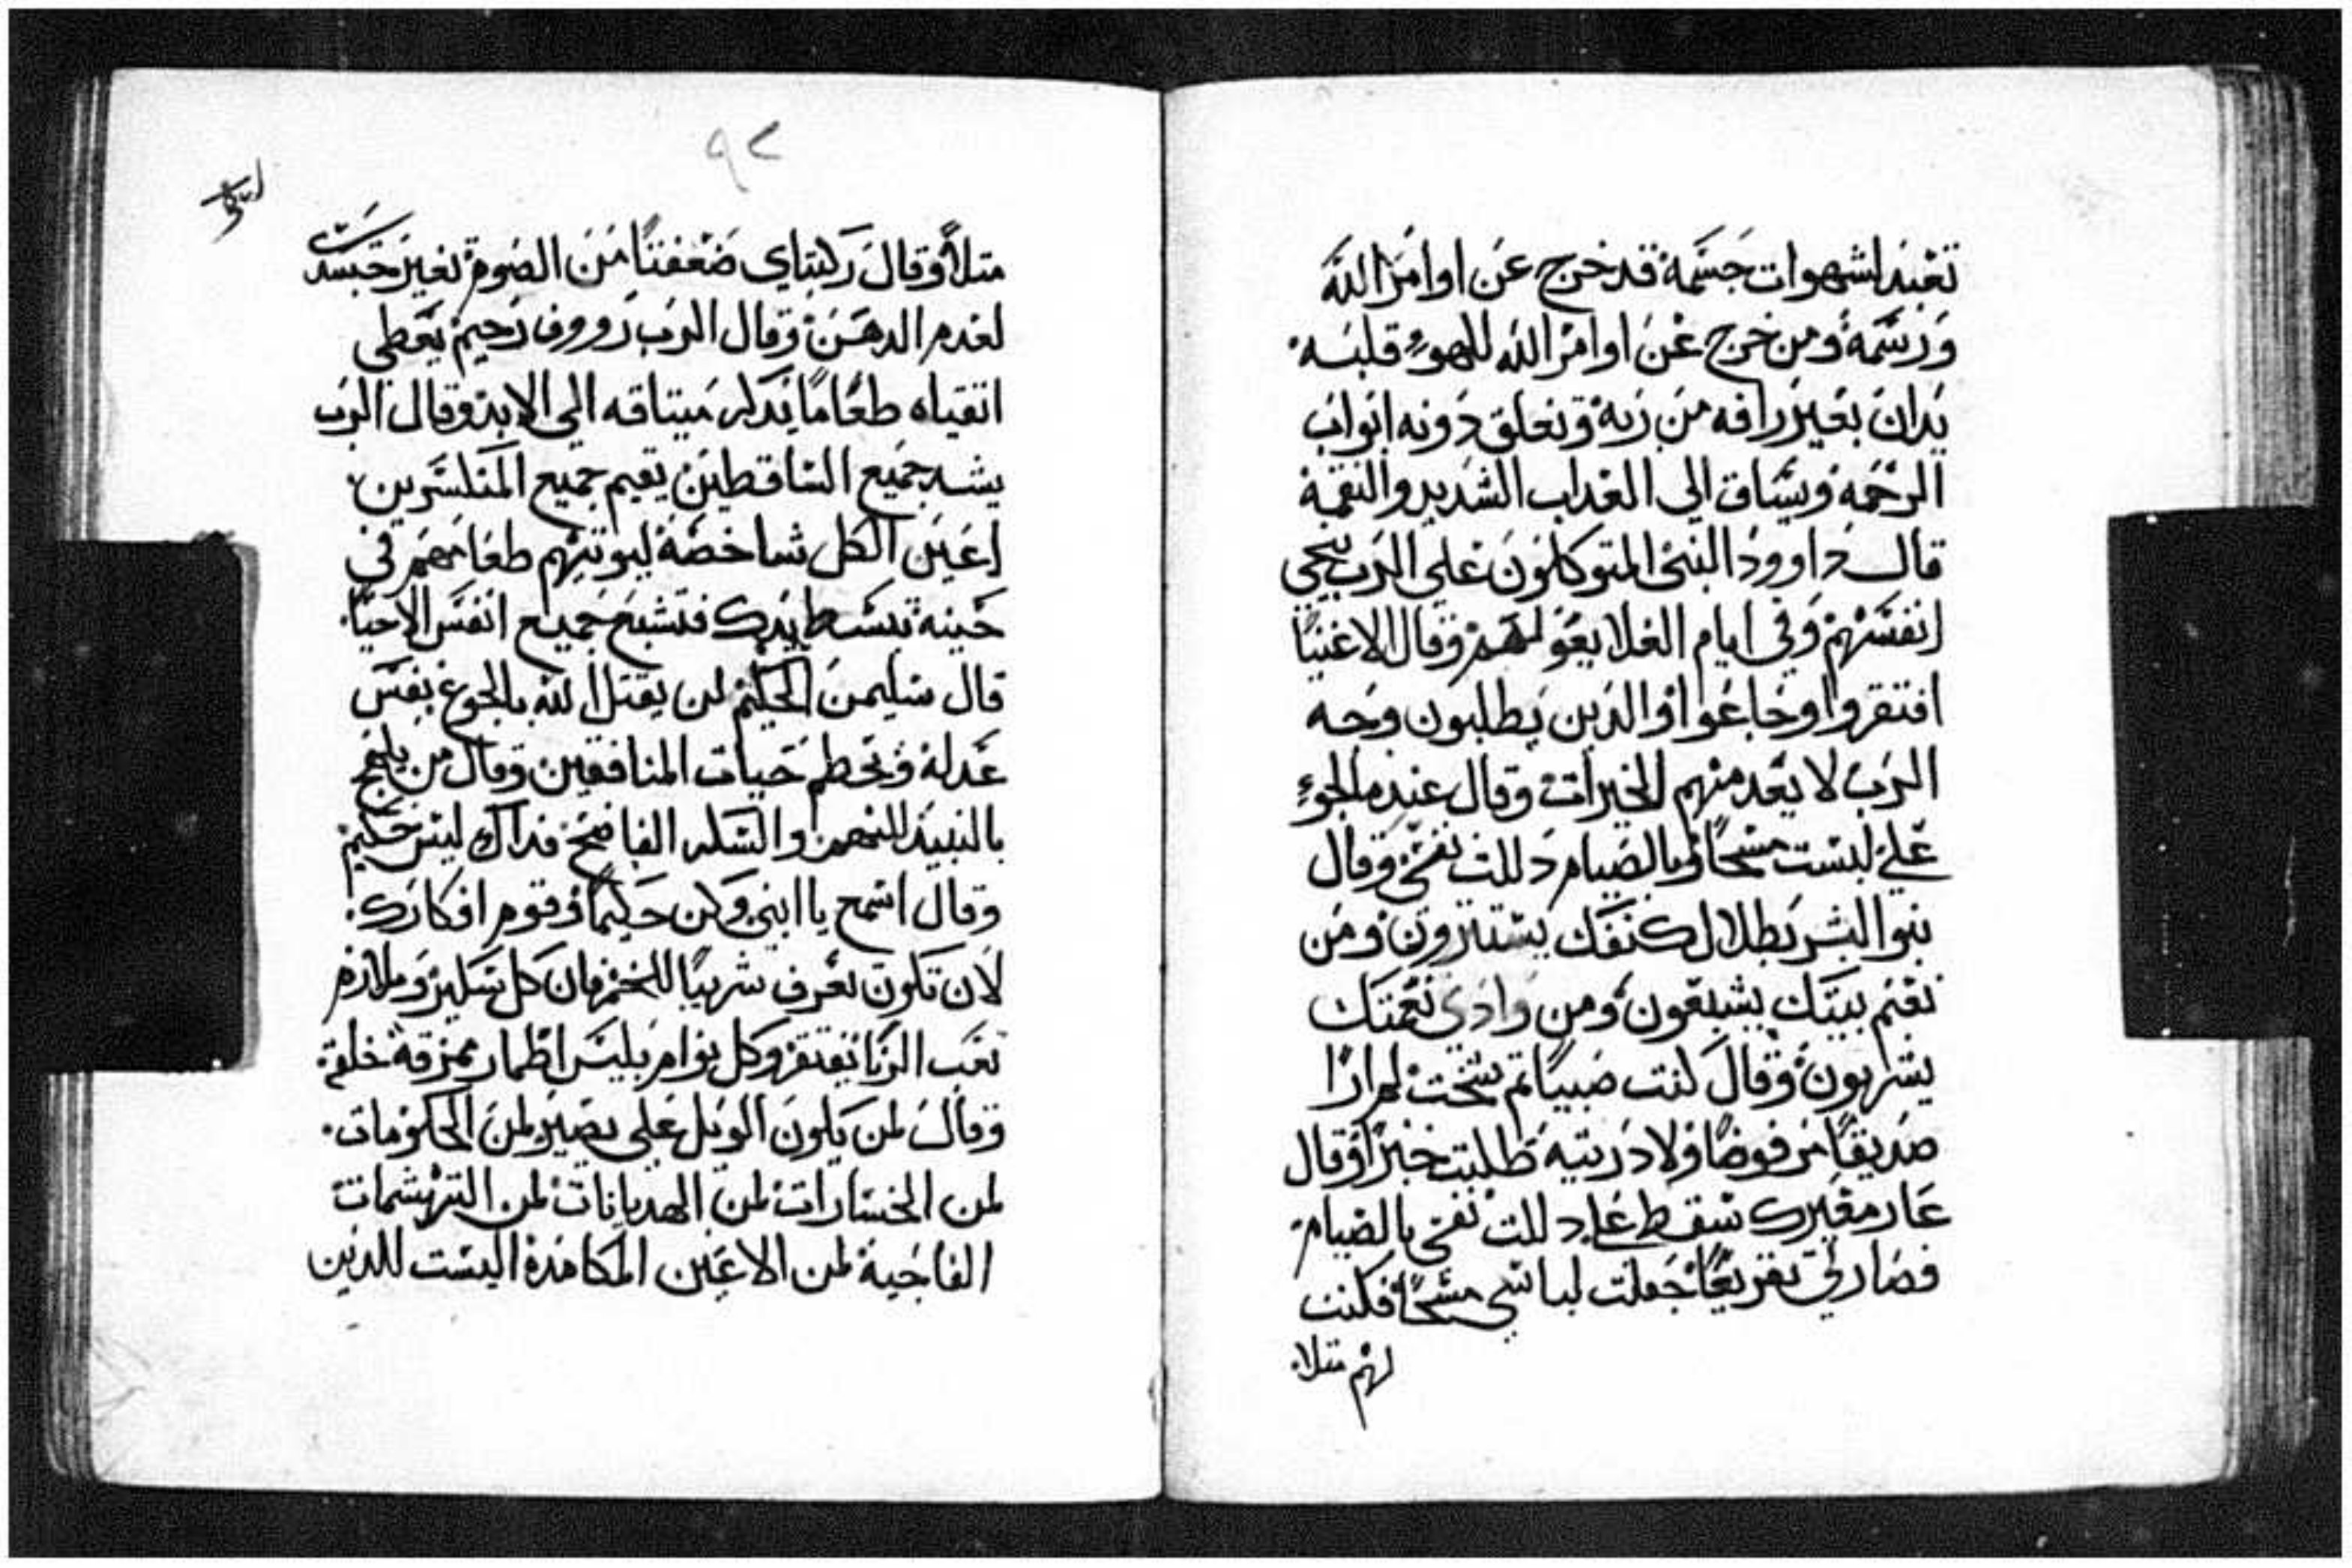 تعبد لشهوات جسمة قد خرج عن اوامر الله
ورسمة ومن خرج عن اوامر الله للهوء قلبه
يدان بغير رافه من ربه وتغلق دونه ابواب
الرحمه ويساق الي العداب الشديد والنقمة
قال داوود النبي المتوكلون علي الرب ينجي
انفسهم وفي ايام الغلا يعولهم وقال الاغنيا
افتقروا وجاعوا والدين يطلبون وجه
الرب لا يعدمنهم الخيرات وقال عندما لجوء
علي لبست مسحا وبالصيام دللت نفخي وقال
بنوا البشر بظلال كنفك يستترون ومن
نعيم بيتك يشبعون ومن وادي نعمتك
يشربون وقال كنت صبيا تم شخت لم ارا
صديقا مرفوضا ولا دريته طلبت خبزا وقال
عار معيرك سقط علي دللت نفخي بالصيام
فصار لي تقريعا جعلت لباسي مسحا فكنت
لهم متلا
٩٢
متلا وقال ركبتاي ضعفتا من الصوم تغير جسدي
لعدم الدهن وقال الرب رووف رحيم يعطي
اتقياه طعاما يدكر ميتاقه الي الابد وقال الرب
يشد جميع الساقطين يقيم جميع المنكسرين
اعين الكل شاخصة ليوتيهم طعامهم في
حينه تبسط يدك فتشبع جميع انفس الاحيا
قال سليمن الحكيم لن يقتل الله بالجوع نفس
عدله وتحطم حيات المنافقين وقال من يلهج
بالنبيد النهم والسكر الفاضح فداك ليس حكيم
وقال اسمع يا ابني وكن حكيما وقوم افكارك
لان تكون تعرف شريبا للخمر فان كل سكير وملازم
نعب الزنا يفتقر وكل نوام يلبس اطمار ممزقة خلقة
وقال لمن يكون الويل علي يصير لمن الحكومات
لمن الخسارات لمن الهديانات لمن الترهشمات
الفاجية لمن الاعين المكامدة اليست للدين